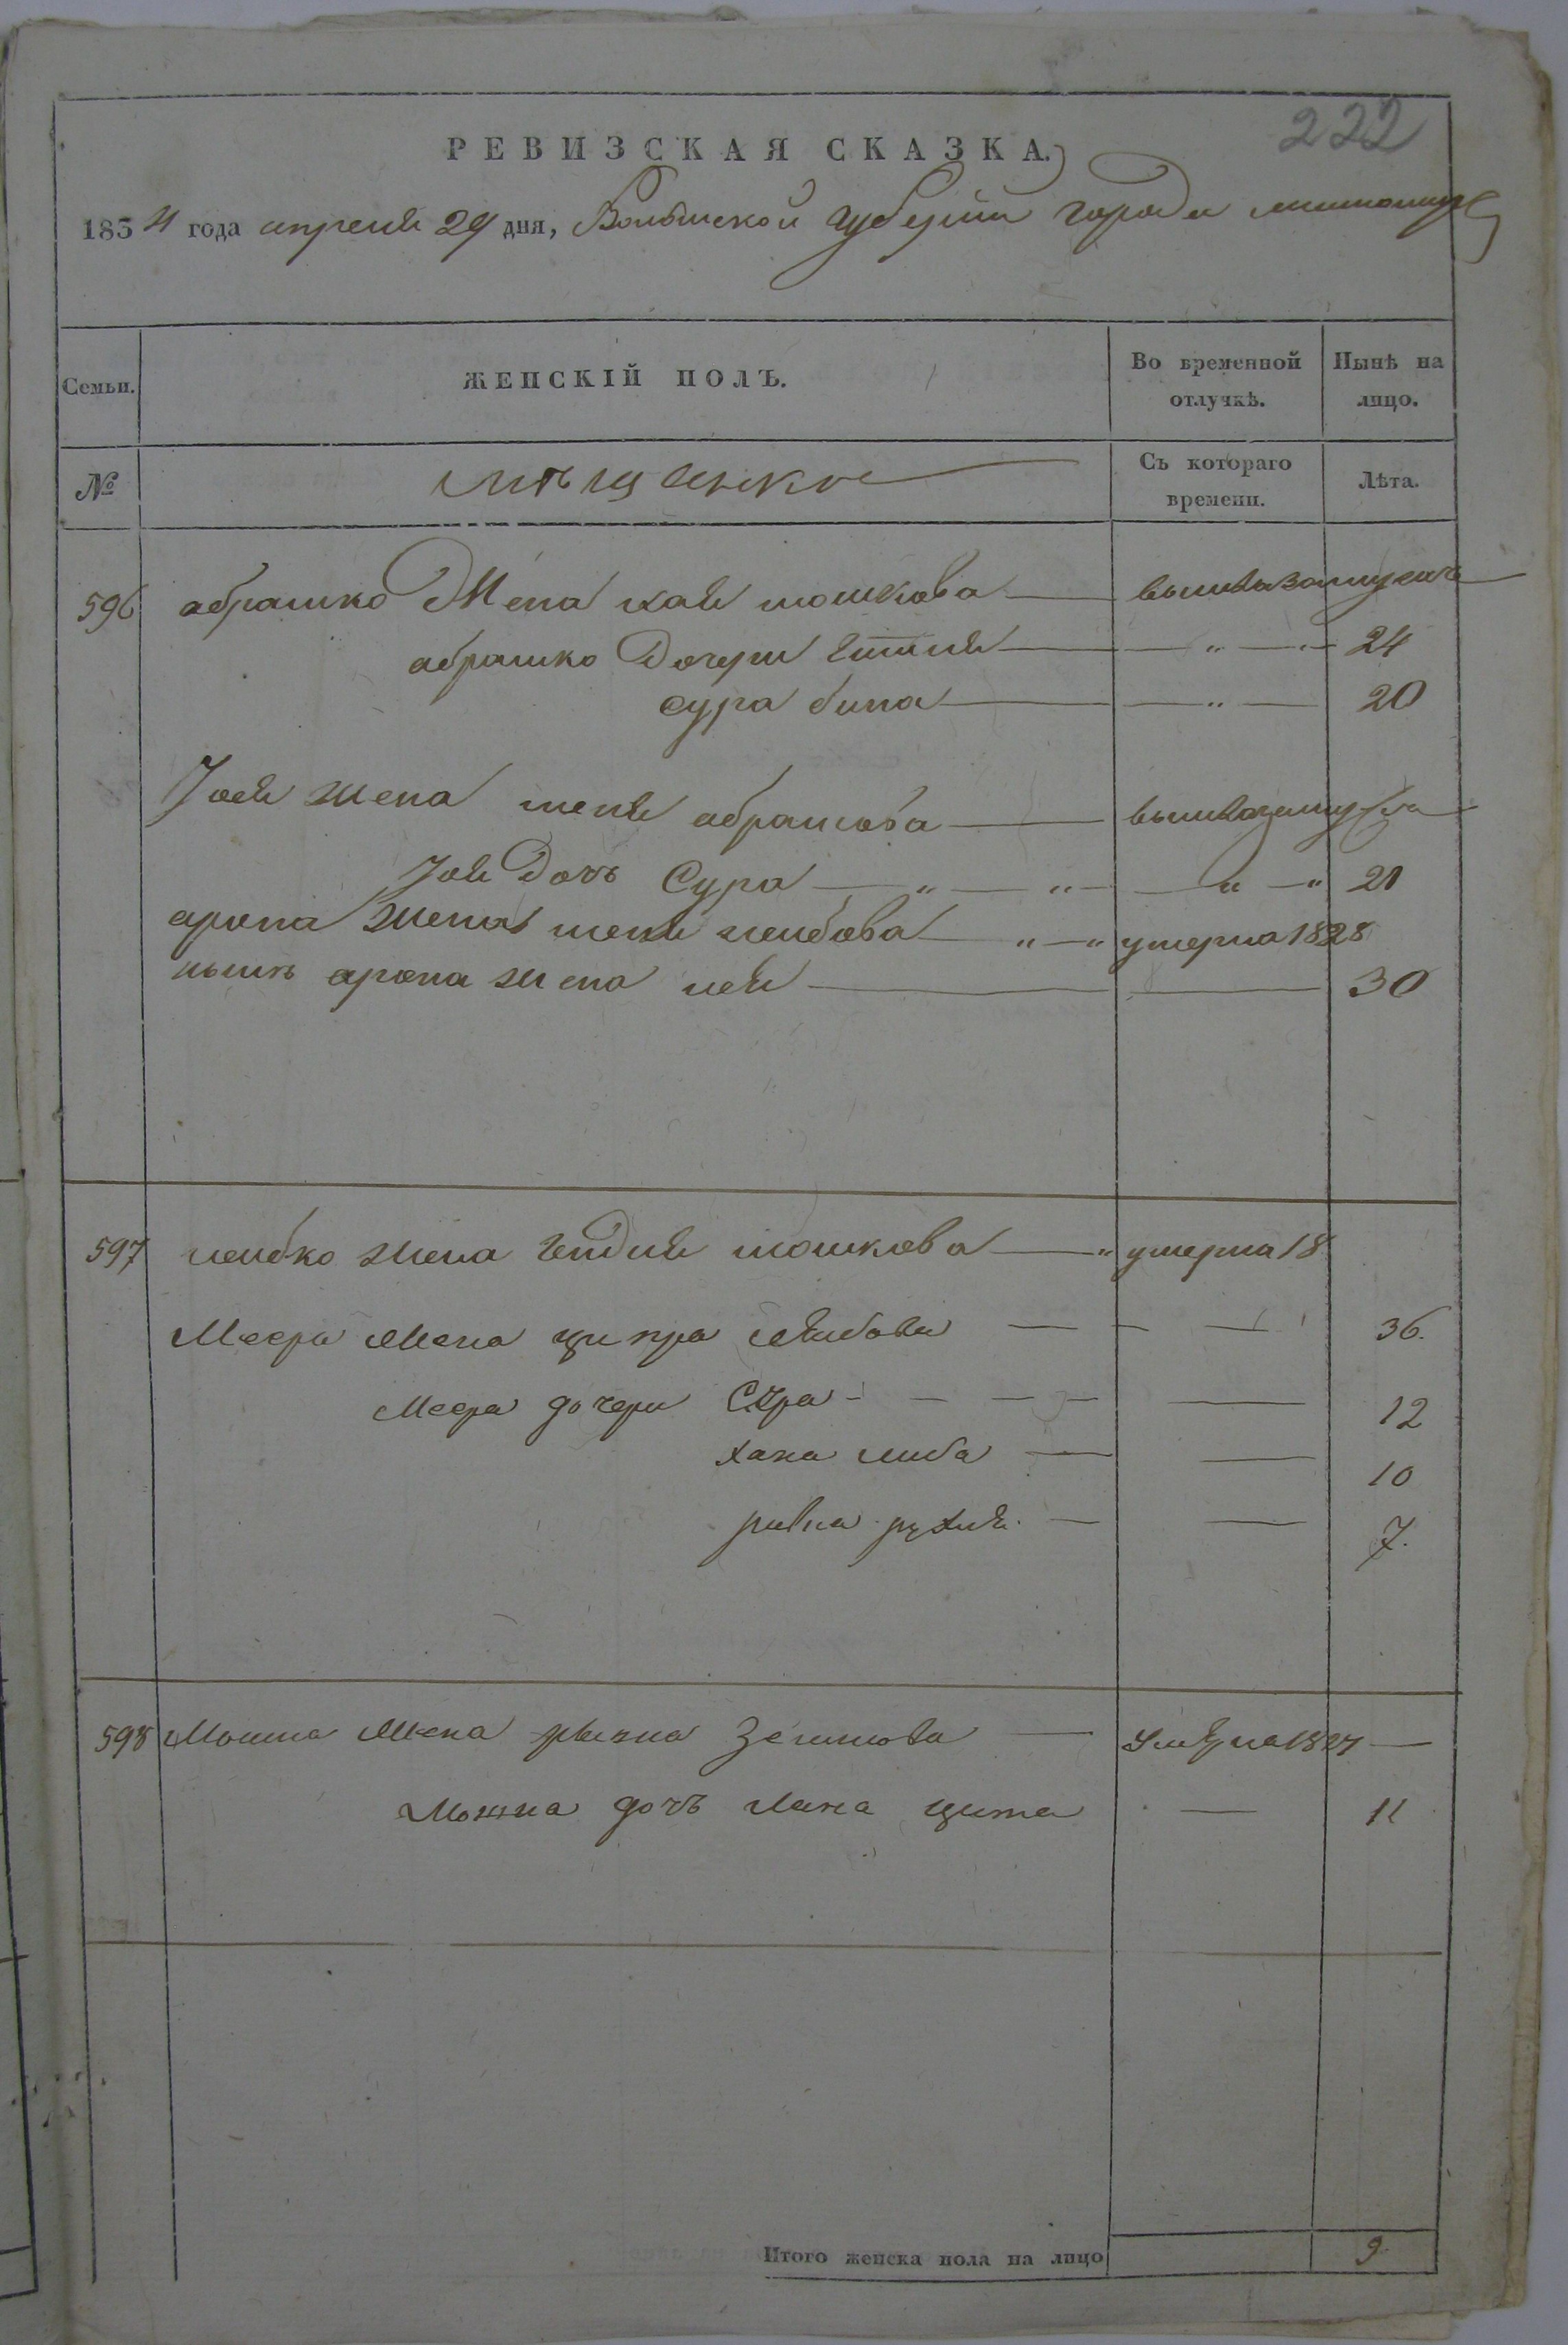 222
РЕВИЗСКАЯ СКАЗКА.
1834 года апреля 29 дня, Волынской Губернии города житомира
Семьи.
ЖЕНСКІЙ ПОЛЪ.
Во временной отлучкѣ.
Нынѣ на лицо.
№
мѣщанкѣ
Съ котораго времени.
Лѣта.
596 абрашко Жена хая мошкова — вышла замуж
абрашко Дочери — " — 24
сура бина — " — 20
жена абрамова — вышла замуж
Дочь Сура — " — " — " — " 21
арона Жена лейбова — " — " умерла 1828
нынѣ арона жена лея — 30
597 лейбко жена мошкова — " умерла 18
Меера Жена ципра Лейбова — 36.
Меера дочери Сура — 12
хана либа — 10
ривка рухля. — 7.
598 Мошка Жена Зельмова — умерла 1827 —
Мошка дочь — 11
Итого женска пола на лицо 9